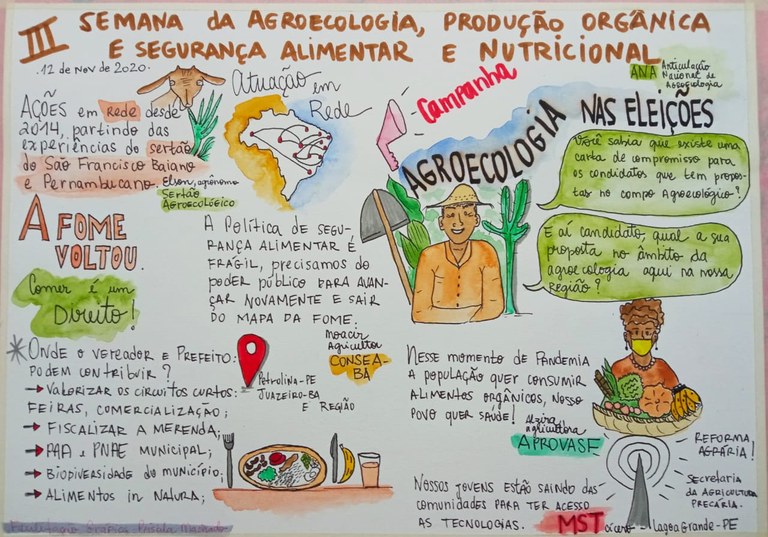 III SEMANA DA AGROECOLOGIA, PRODUÇÃO ORGÂNICA
E SEGURANÇA ALIMENTAR E NUTRICIONAL
.12 de Nov de 2020.
AÇÕES em REDE desde
2014, partindo das
experiências do sertão
do São Francisco Baiano
e Pernambucano.
Elson, agrônomo
SERTÃO
AGROECOLÓGICO
Atuação em
Rede
Campanha
AGROECOLOGIA
NAS ELEIÇÕES
ANA
Articulação
Nacional de
Agroecologia
Você sabia que existe uma
carta de compromisso para
os candidatos que tem propos-
tas no campo Agroecológico?
E aí candidato, qual a sua
proposta no âmbito da
agroecologia aqui na nossa
região?
A FOME
VOLTOU.
Comer é um
DIREITO!
A POLÍTICA DE SEGU-
RANÇA ALIMENTAR É
FRÁGIL, PRECISAMOS DO
PODER PÚBLICO PARA AVAN-
ÇAR NOVAMENTE E SAIR
DO MAPA DA FOME.
Moacir
Agricultor
CONSEA-
BA
* ONDE O VEREADOR E PREFEITO:
PODEM CONTRIBUIR?
→ VALORIZAR OS CIRCUITOS CURTOS:
FEIRAS, COMERCIALIZAÇÃO;
→ FISCALIZAR A MERENDA;
→ PAA e PNAE MUNICIPAL;
→ BIODIVERSIDADE DO MUNICÍPIO;
→ ALIMENTOS in NATURA;
PETROLINA-PE
JUAZEIRO-BA
E REGIÃO
NESSE MOMENTO DE PANDEMIA
A POPULAÇÃO QUER CONSUMIR
ALIMENTOS ORGÂNICOS, NOSSO
POVO QUER SAÚDE!
Alzira
agricultora
APROVASF
NOSSOS JOVENS ESTÃO SAINDO DAS
COMUNIDADES PARA TER ACESSO
AS TECNOLOGIAS.
MST
Cícero - Lagoa Grande-PE
REFORMA
AGRÁRIA!
SECRETARIA
DA AGRICULTURA
PRECÁRIA.
Facilitação Gráfica